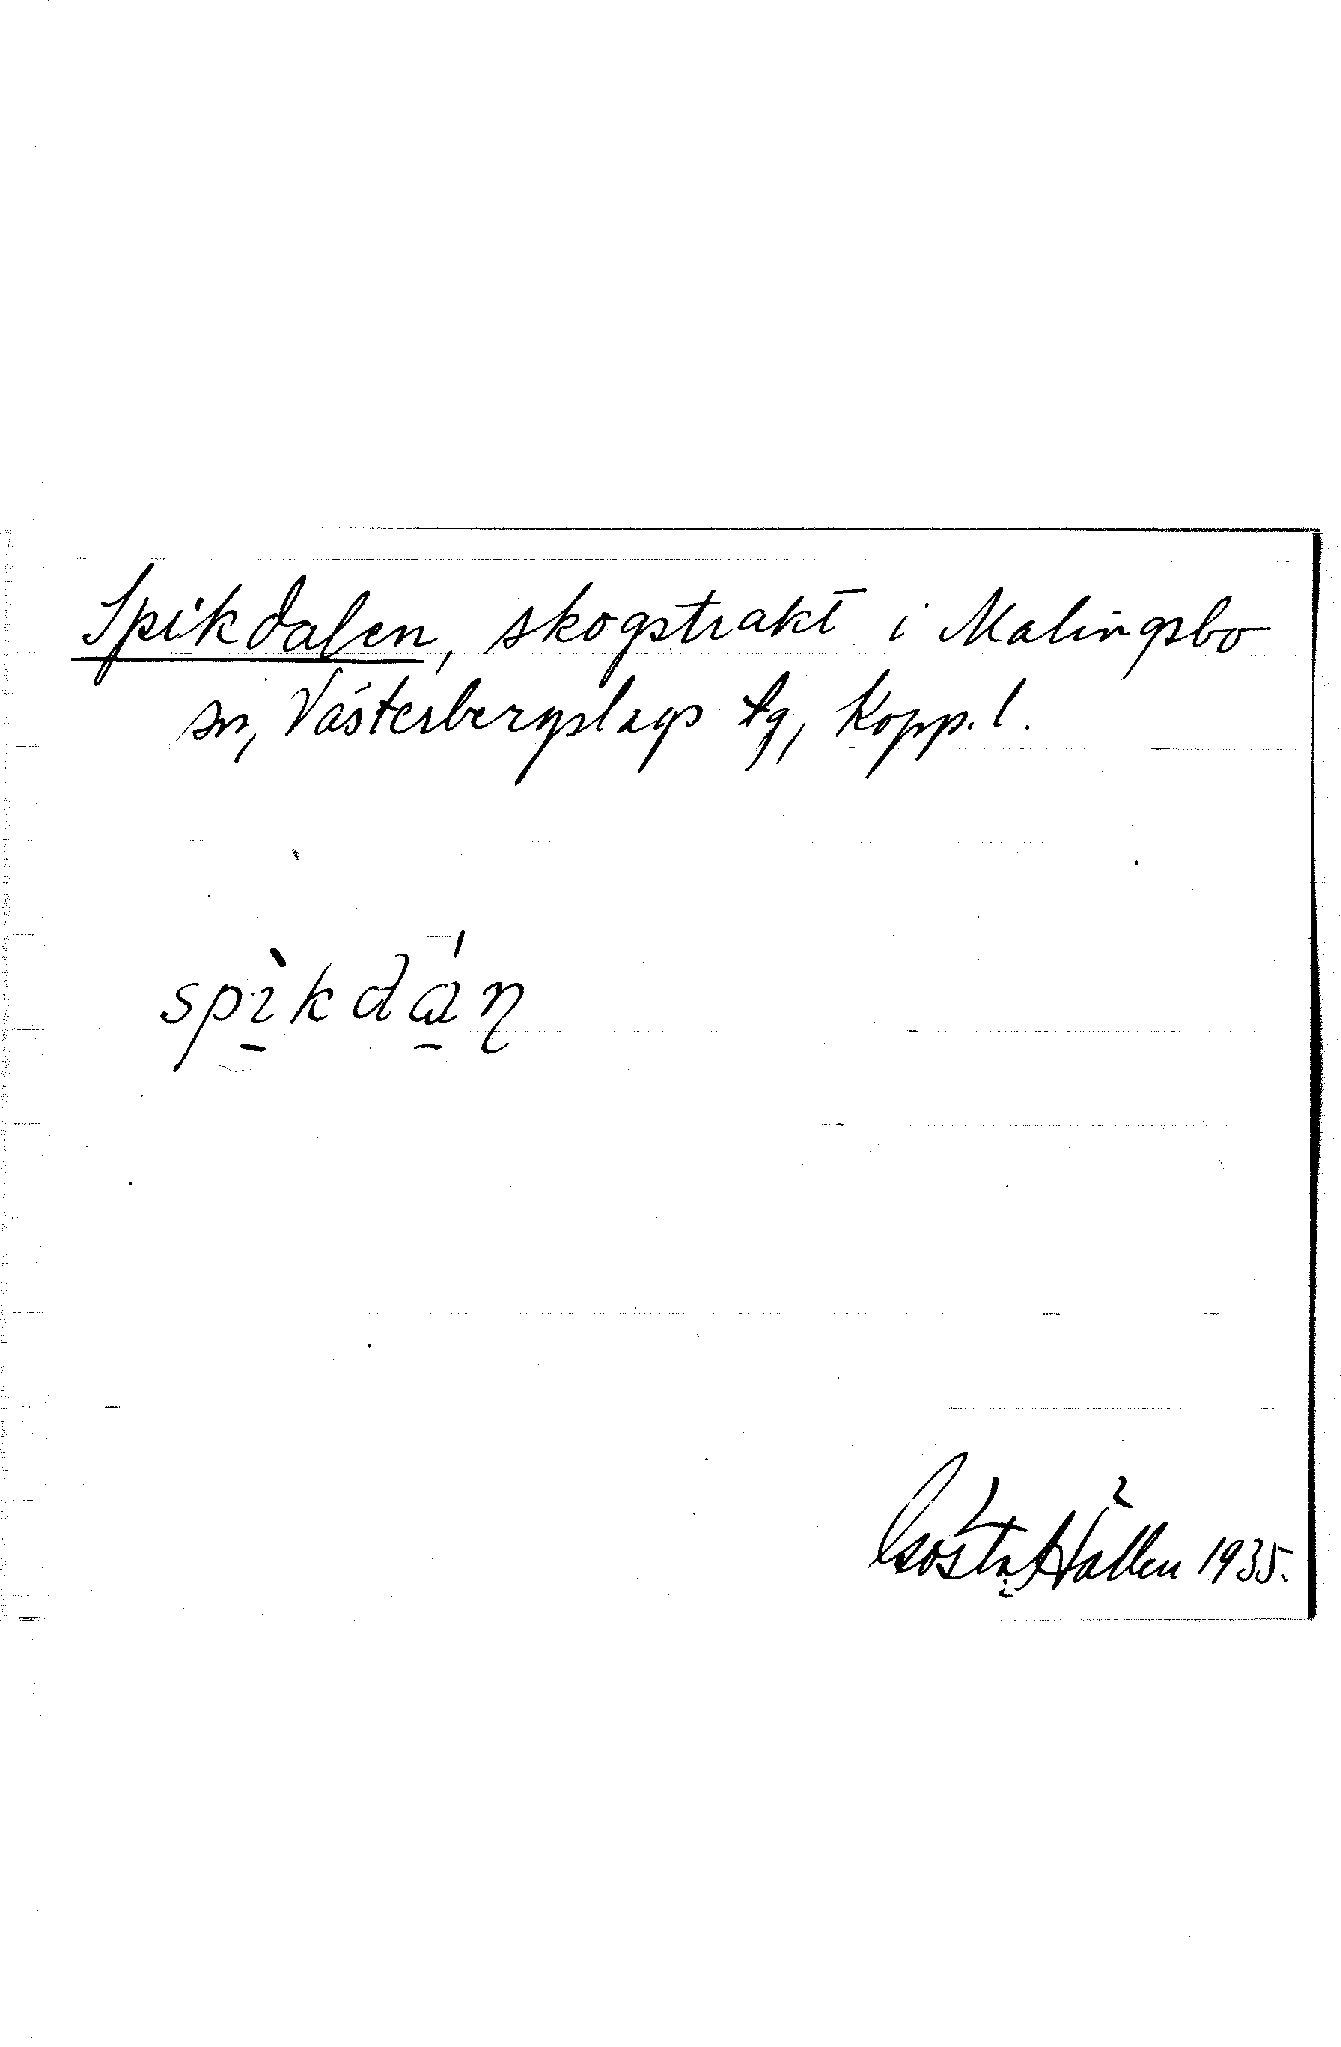 Spikdalen, skogstrakt i Malingsbo
sn, Västerbergslags tg, Kopp. l.
spì̠kdá̠ṇ
Gösta Hallen 1935.